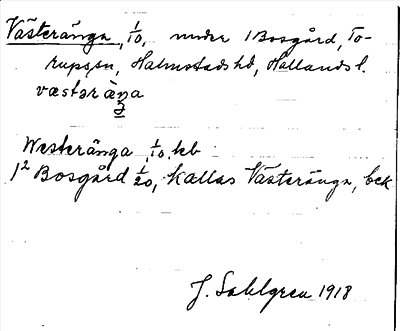 Västeränga, 1/10, under 1 Bosgård, To-
rup sn, Halmstads hd, Hallands l.
væstəræŋa
Westeränga 1/10 kb
1² Bosgård 1/20, kallas Västeränga, bek
J. Sahlgren 1918